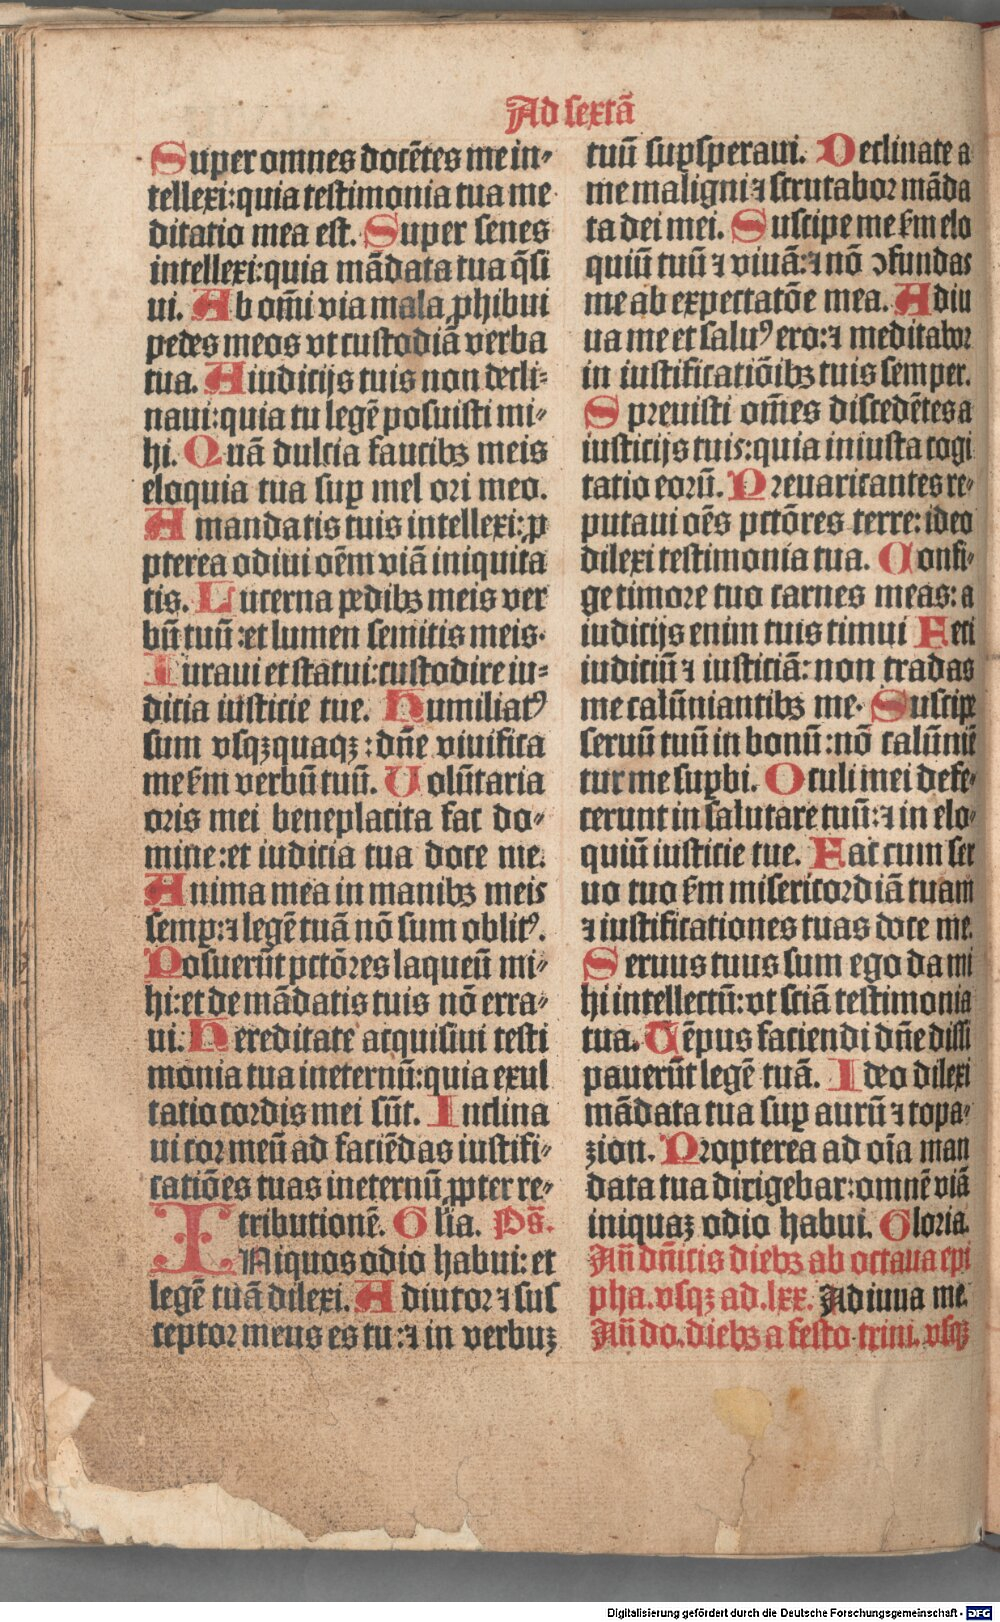 Ad sextā
Super omnes docētes me in⸗
tellexi: quia testimonia tua me
ditatio mea est. Super senes
intellexi: quia mādata tua q̄si
ui. Ab om̄i via mala ꝓhibui
pedes meos vt custodiā verba
tua. A iudicijs tuis non decli⸗
naui: quia tu legē posuisti mi⸗
hi. Quā dulcia faucibꝫ meis
eloquia tua suꝑ mel ori meo.
A mandatis tuis intellexi: ꝓ
pterea odiui oēm viā iniquita
tis. Lucerna pedibꝫ meis ver
bū tuū: et lumen semitis meis.
Iuraui et statui: custodire iu⸗
dicia iusticie tue. Humiliatꝰ
sum vsqꝫquaqꝫ: dn̄e viuifica
me km̄ verbū tuū. Uolūtaria
oris mei beneplacita fac do⸗
mine: et iudicia tua doce me.
Anima mea in manibꝫ meis
semꝑ: ⁊ legē tuā nō sum oblitꝰ.
Posuerūt pctōres laqueū mi⸗
hi: et de mādatis tuis nō erra⸗
ui: Hereditate acquisiui testi
monia tua ineternū: quia exul
tatio cordis mei sūt. Inclina
ui cor meū ad faciēdas iustifi⸗
catiōes tuas ineternū ꝓpter re⸗
tributionē. Glia. Ps̄.
INiquos odio habui: et
legē tuā dilexi. Adiutor ⁊ sus
ceptor meus es tu: ⁊ in verbuꝫ
tuū suꝑsperaui. Declinate a
me maligni ⁊ scrutabor māda
ta dei mei. Suscipe me km̄ elo
quiū tuū ⁊ viuā: ⁊ nō ↄfundas
me ab expectatōe mea. Adiu
ua me et saluꝰ ero: ⁊ meditabor
in iustificatiōibꝫ tuis semper.
Spreuisti om̄es discedētes a
iusticijs tuis: quia iniusta cogi
tatio eorū. Preuaricantes re⸗
putaui oēs pctōres terre: ideo
dilexi testimonia tua. Confi⸗
ge timore tuo carnes meas: a
iudicijs enim tuis timui Feci
iudiciū ⁊ iusticiā: non tradas
me calūniantibꝫ me. Suscipe
seruū tuū in bonū: nō calūniē
tur me suꝑbi. Oculi mei defe⸗
cerunt in salutare tuū: ⁊ in elo⸗
quiū iusticie tue. Fac cum ser
uo tuo km̄ misericordiā tuam
⁊ iustificationes tuas doce me.
Seruus tuus sum ego da mi
hi intellectū: vt sciā testimonia
tua. Tēpus faciendi dn̄e dissi
pauerūt legē tuā. Ideo dilexi
mādata tua suꝑ aurū ⁊ topa⸗
zion. Propterea ad oīa man
data tua dirigebar: omnē viā
iniquaꝫ odio habui. Gloria.
An̄ dn̄icis diebꝫ ab octaua epi
pha. vsqꝫ ad .lxx. Adiuua me.
An̄ do. diebꝫ a festo trini. vsqꝫ
Digitalisierung gefördert durch die Deutsche Forschungsgemeinschaft - DFG